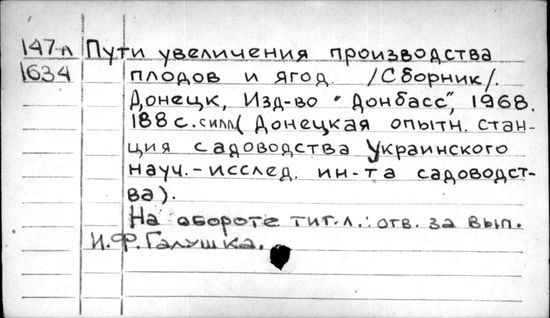 147л Пути увеличения производства
1634 плодов и ягод /Сборник/.
Донецк, Изд-во "Донбасс", 1968.
188 с. с илл. (Донецкая опытн. стан-
ция садоводства Украинского
науч.-исслед. ин-та садоводст-
ва).
На обороте тит.л.: отв. за вып.
И.Ф.Галушка.